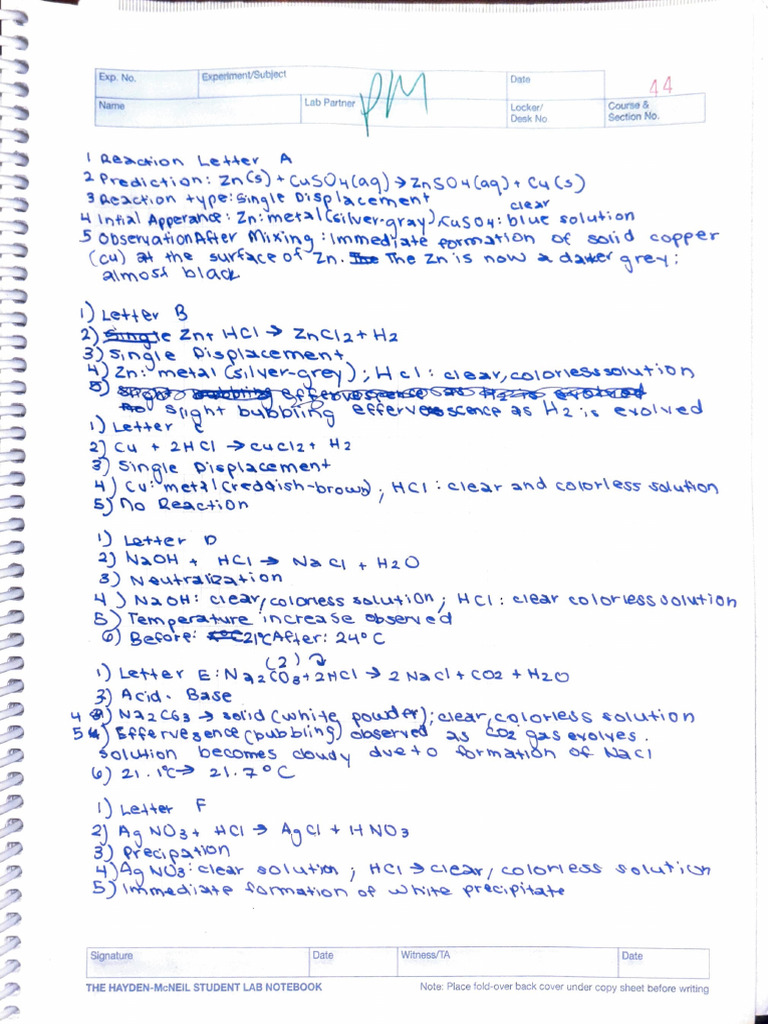 Exp. No.
Experiment/Subject
Date
44
Name
Lab Partner
PM
Locker/
Desk No
Course &
Section No.
1 Reaction Letter A
2 Prediction: Zn(s) + CuSO4(aq) → ZnSO4(aq) + Cu(s)
3 Reaction type: Single Displacement
clear
4 Intial Apperance: Zn: metal(silver-gray), CuSO4: blue solution
5 Observation After Mixing: Immediate formation of solid copper
(Cu) at the surface of Zn. The The Zn is now a darker grey;
almost black
1) Letter B
2) Single Zn+ HCl → ZnCl2 + H2
3) Single Displacement
4) Zn: metal (silver-grey); HCl: clear, colorless solution
5) slight bubbling effervescence as H2 is evolved
slight bubbling effervescence as H2 is evolved
1) Letter C
2) Cu + 2HCl → CuCl2 + H2
3) Single Displacement
4) Cu: metal (reddish-brown); HCl: clear and colorless solution
5) No Reaction
1) Letter D
2) NaOH + HCl → NaCl + H2O
3) Neutralization
4) NaOH: clear, colorless solution; HCl: clear colorless solution
5) Temperature increase observed
6) Before: 21°C After: 24°C
(2)
1) Letter E: Na2CO3 + 2HCl → 2 NaCl + CO2 + H2O
3) Acid-Base
4 Na2CO3 → solid (white powder); clear, colorless solution
5 4) Effervesence (bubbling) observed as CO2 gas evolves.
solution becomes cloudy due to formation of NaCl
6) 21.1°C → 21.7°C
1) Letter F
2) AgNO3 + HCl → AgCl + HNO3
3) Precipation
4) AgNO3: clear solution; HCl → clear, colorless solution
5) Immediate formation of white precipitate
Signature
Date
Witness/TA
Date
THE HAYDEN-McNEIL STUDENT LAB NOTEBOOK
Note: Place fold-over back cover under copy sheet before writing